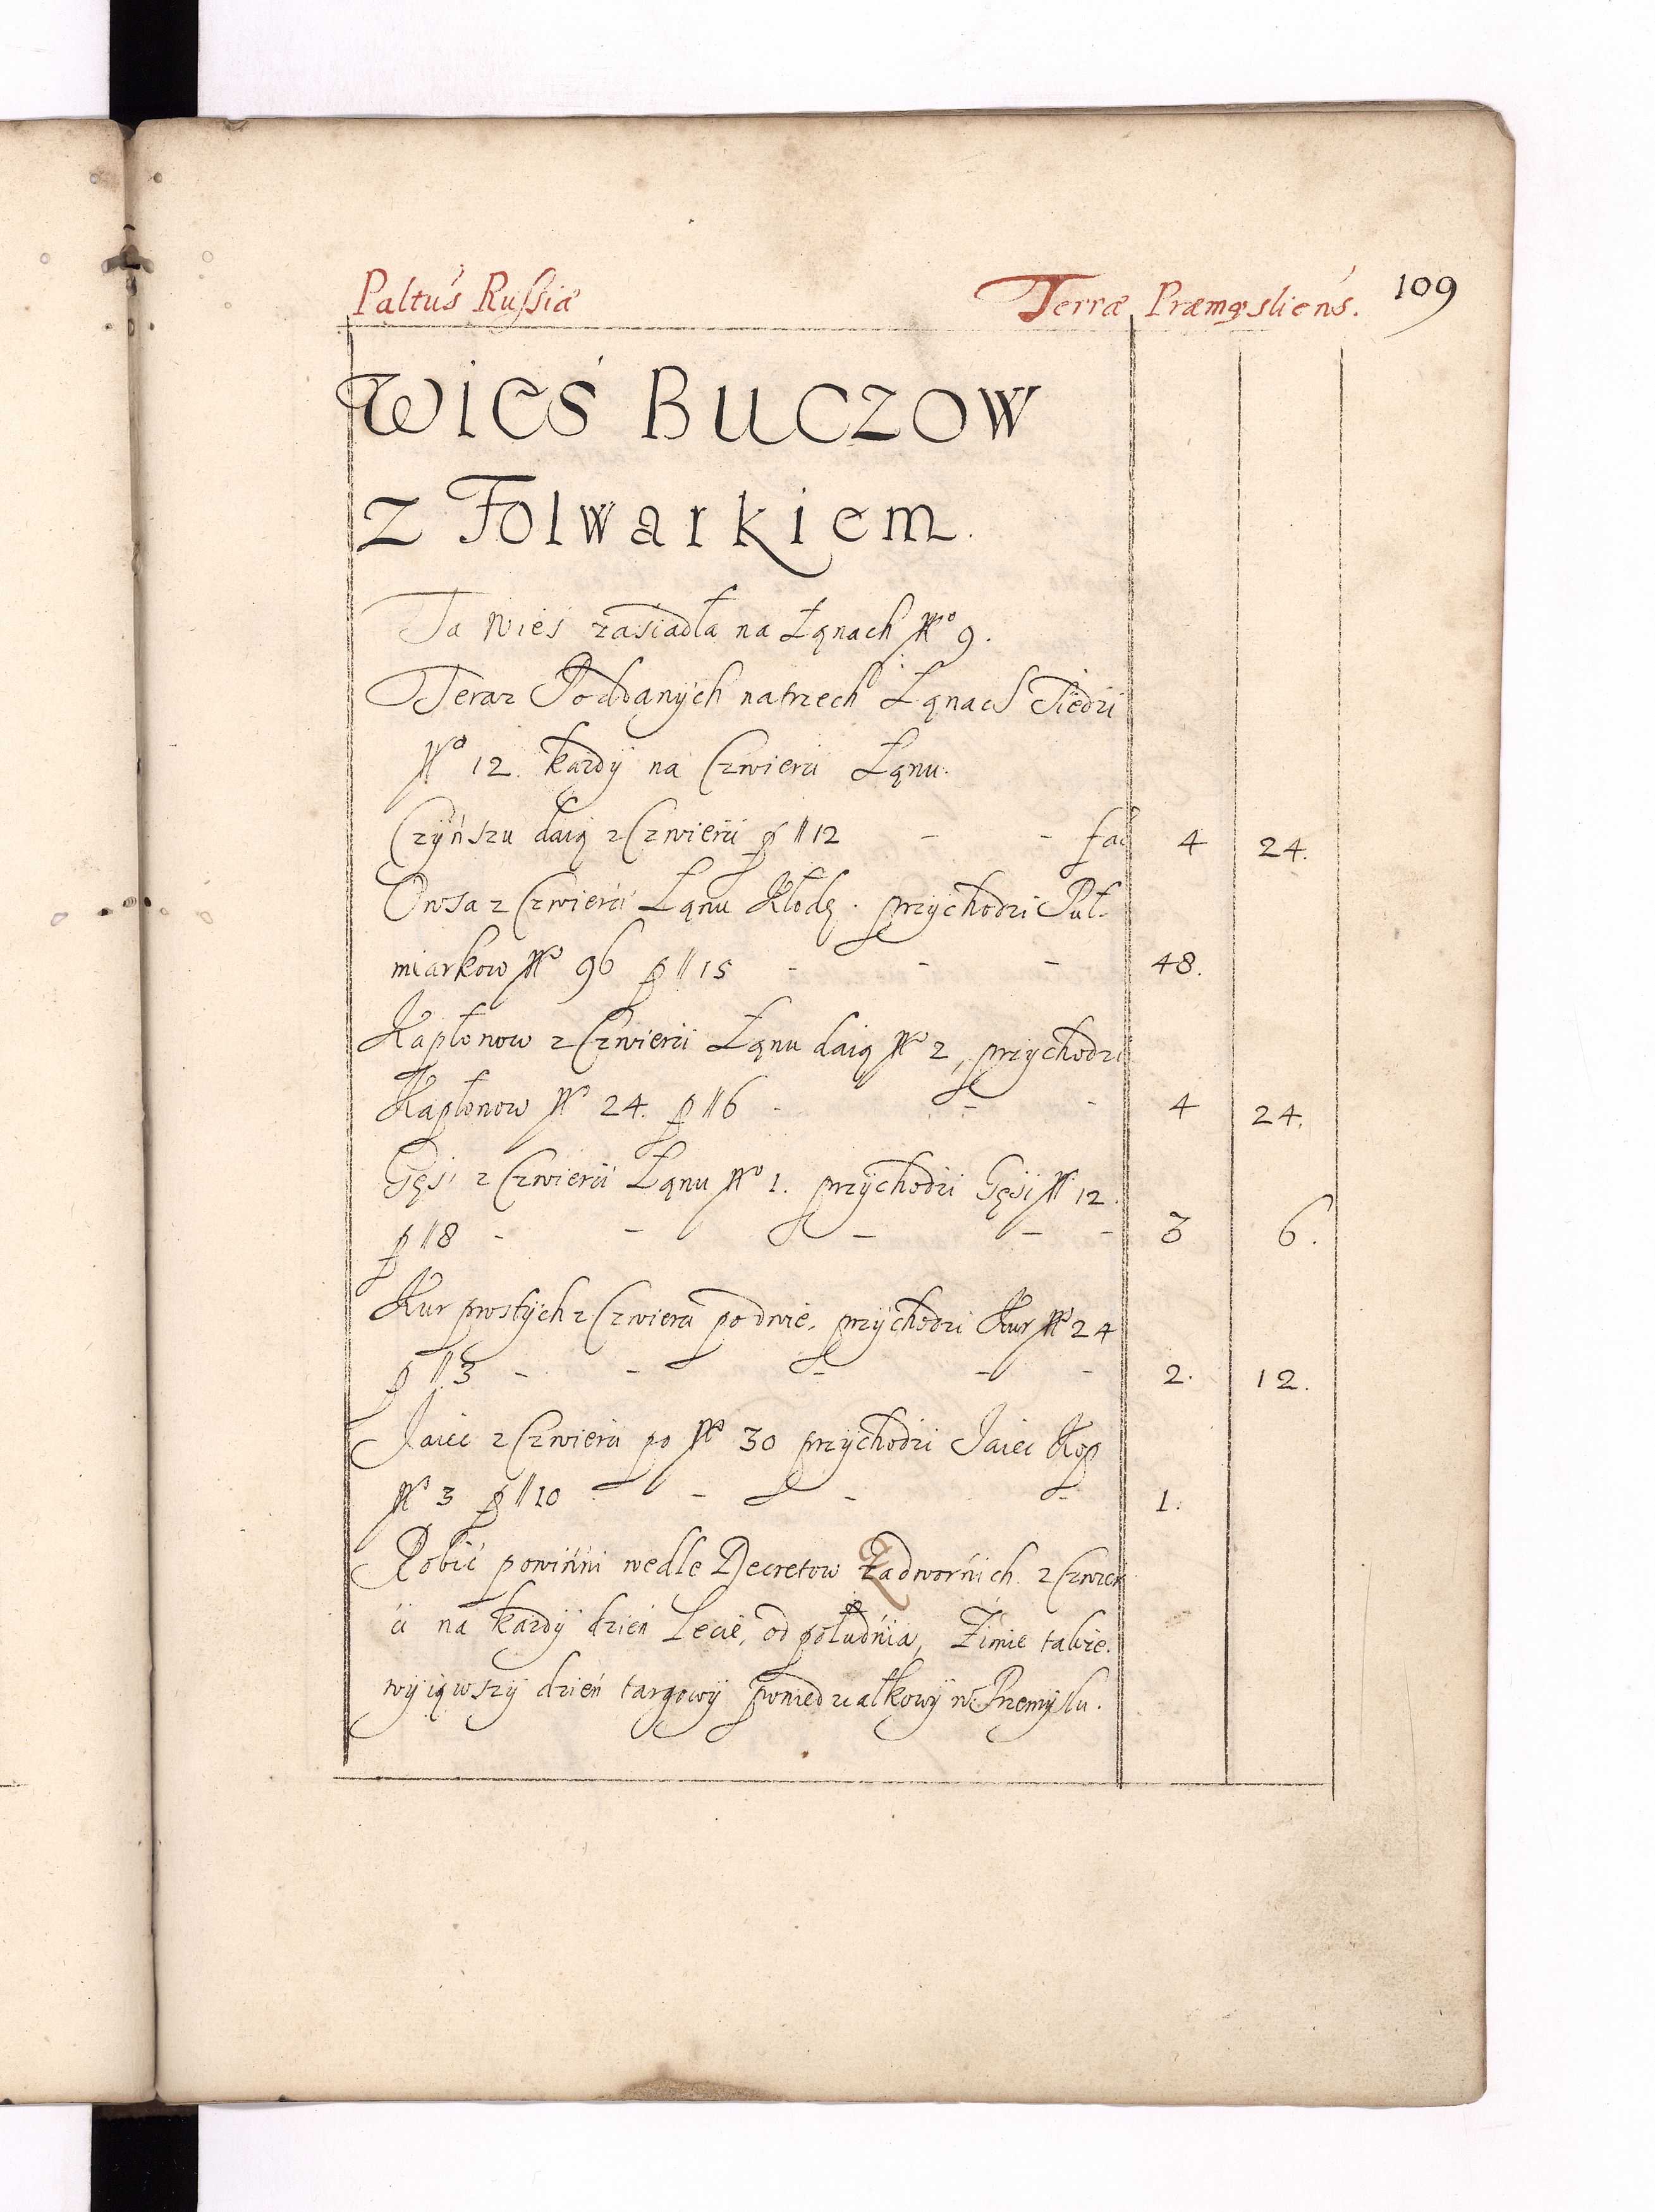 Paltus Russiæ Terræ Præmysliens. 109
Wieś Buczow
z Folwarkiem.
Ta Wieś zasiadła na Łąnach No 9.
Teraz Poddanych na trzech Łąnach Siedzi
No 12. każdy na Czwierci Łąnu.
Czynszu daią z Czwierci p // 12 - - fac 4 24.
Owsa z Czwierci Łąnu Kłodę. przychodzi Puł-
miarkow No 96 p // 15 - - - 48.
Kapłonow z Czwierci Łąnu daią No 2, przychodzi
Kapłonow No 24. p // 6 - - - 4 24.
Gęsi z Czwierci Łąnu No 1. przychodzi Gęsi No 12.
p // 8 - - - - - 3 6.
Kur prostych z Czwierci po dwie, przychodzi Kur No 24
p // 3 - - - - - 2. 12.
Iaiec z Czwierci po No 30 przychodzi Iaiec Kop
No 3 p // 10 - - - - 1.
Robić powinni wedle Decretow Zadwornich z Czwier
ci na każdy dzień Lecie, od południa, Zimie także.
wyiąwszy dzień targowy poniedziałkowy w Przemyslu.